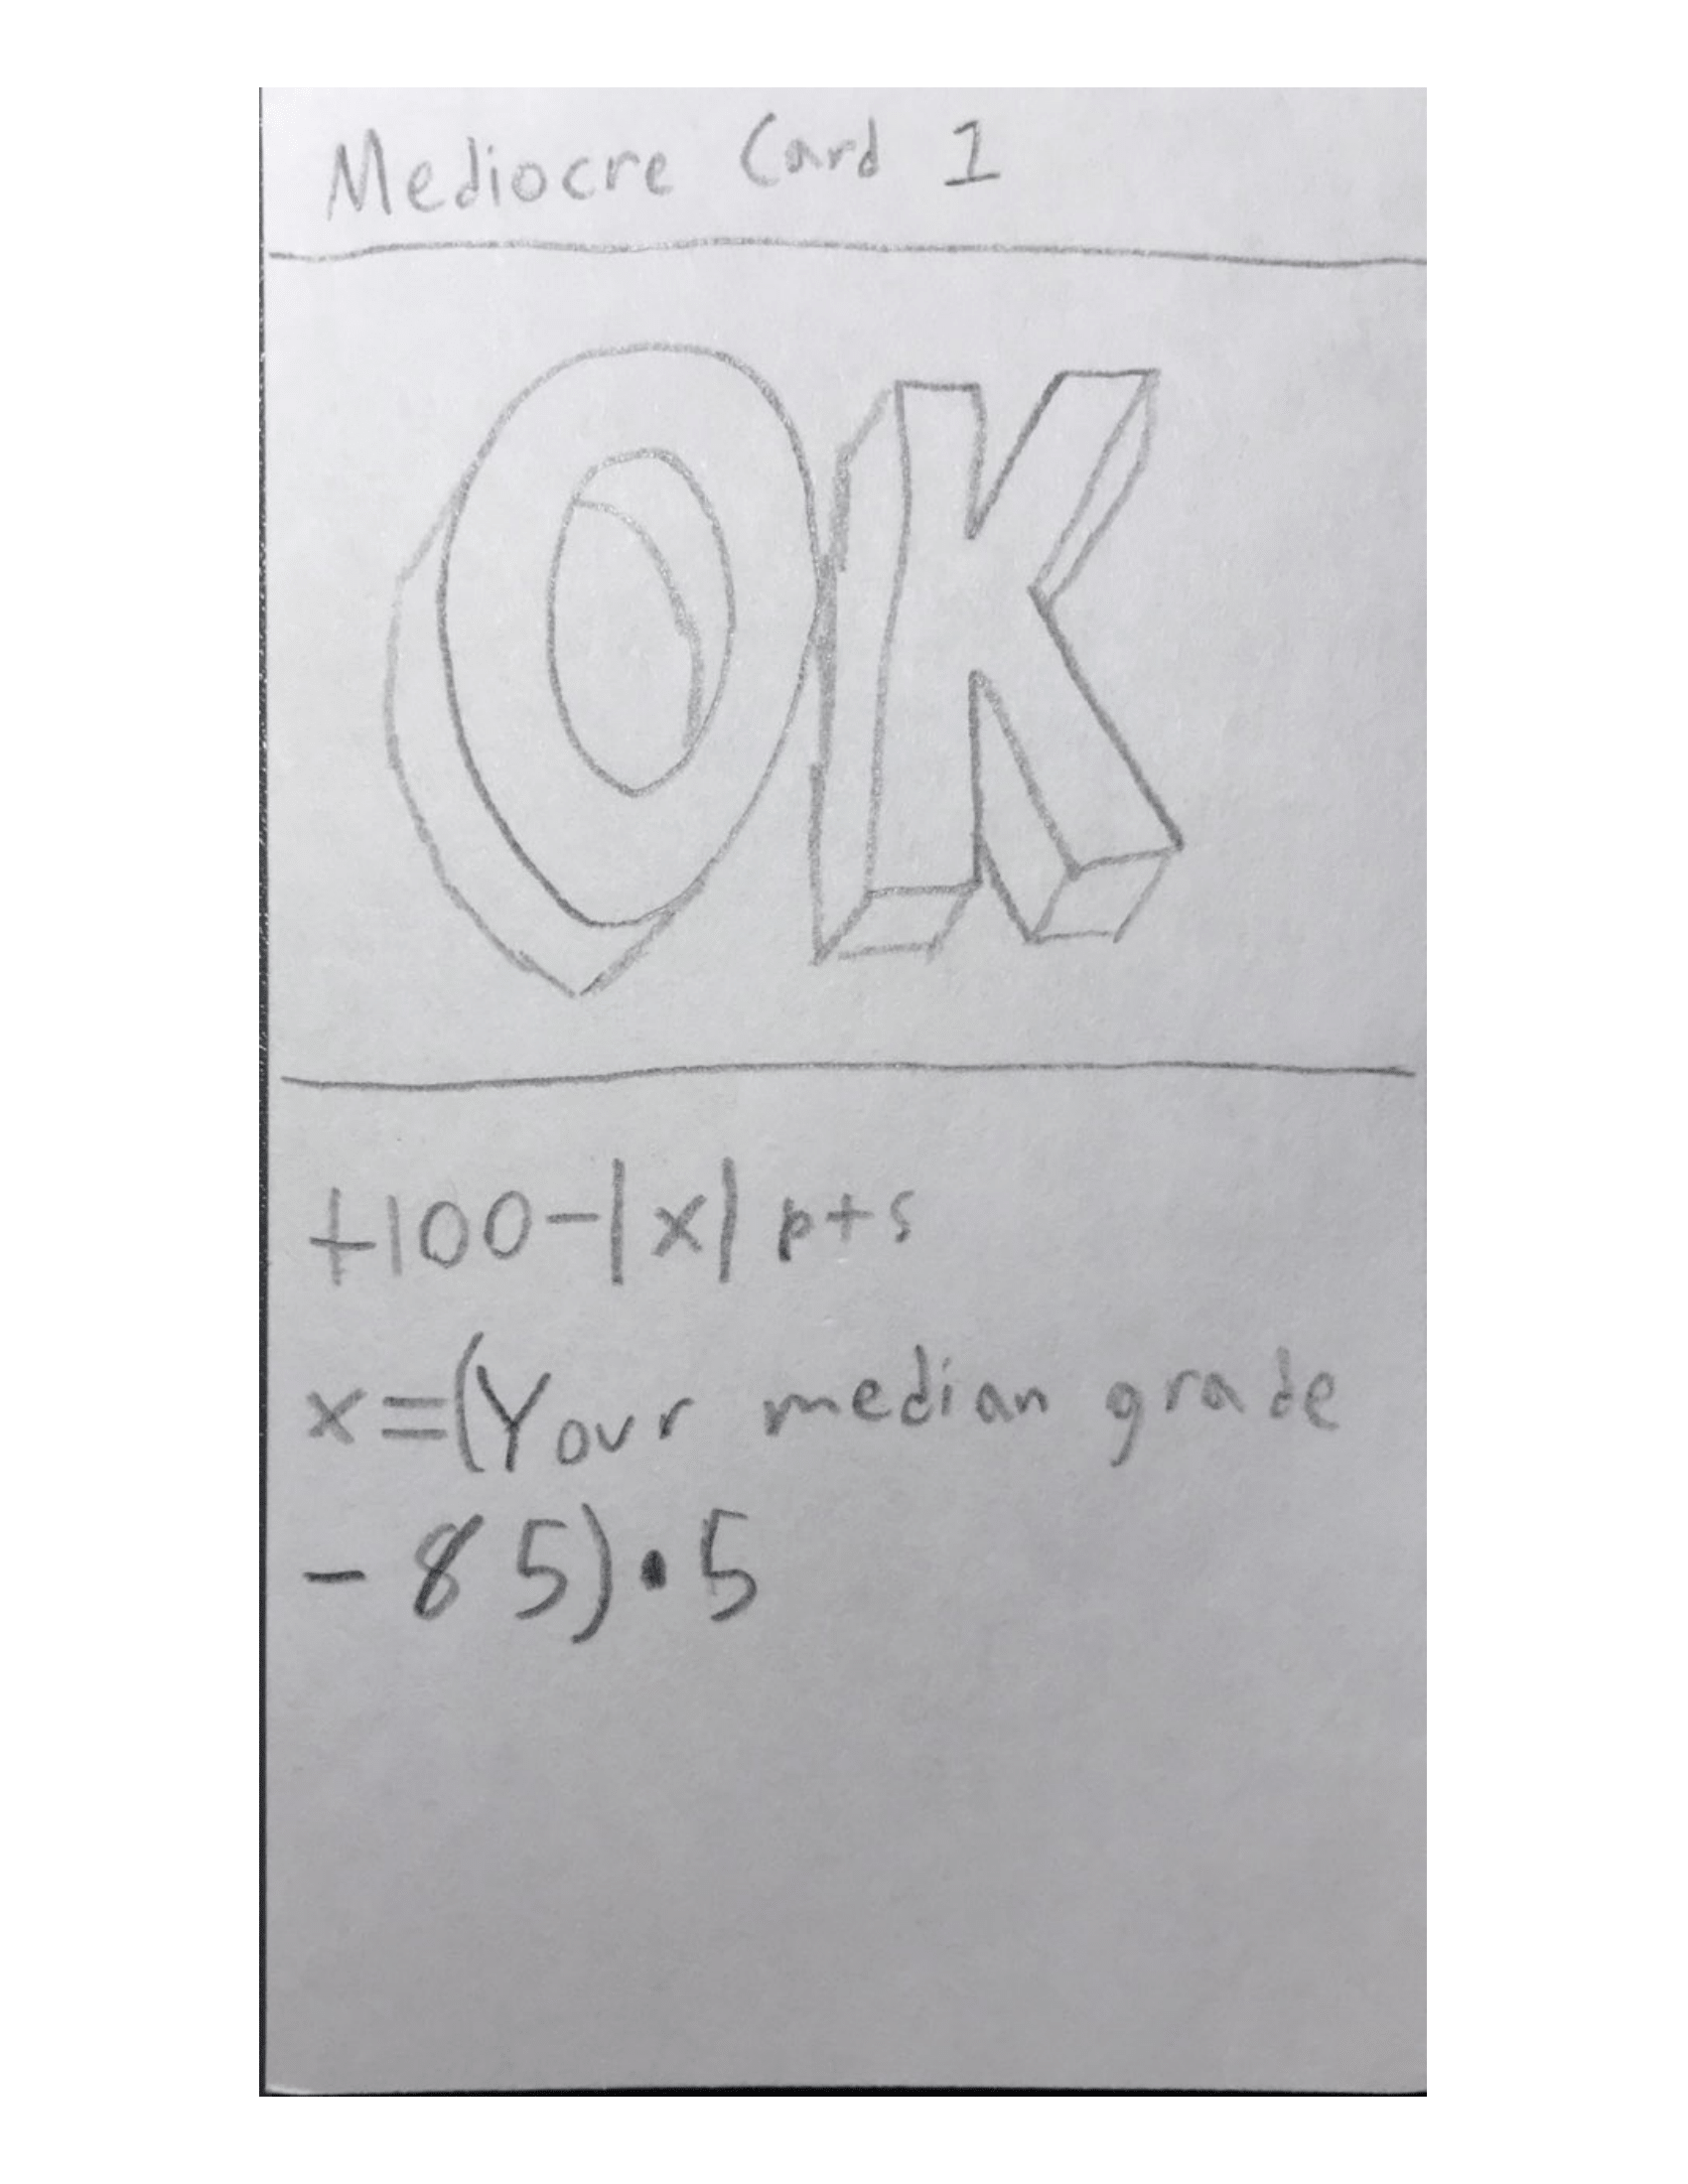 Mediocre Card 1
OK
+100-|x| pts
x=(Your median grade
- 85)•5